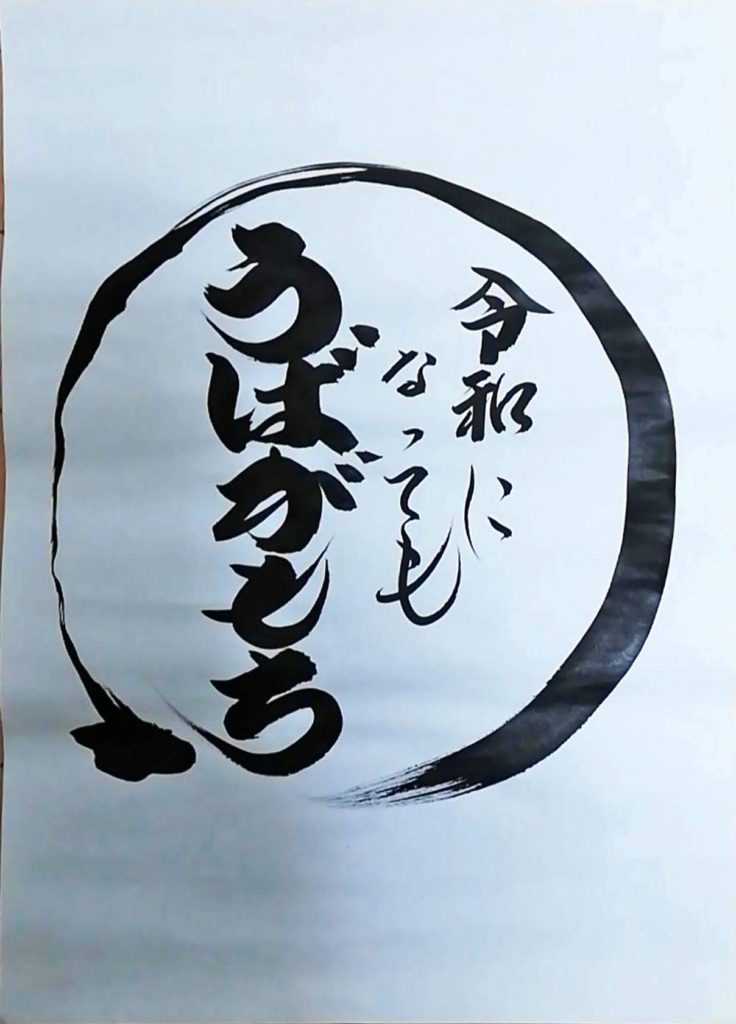 令和に
なっても
うばがもち